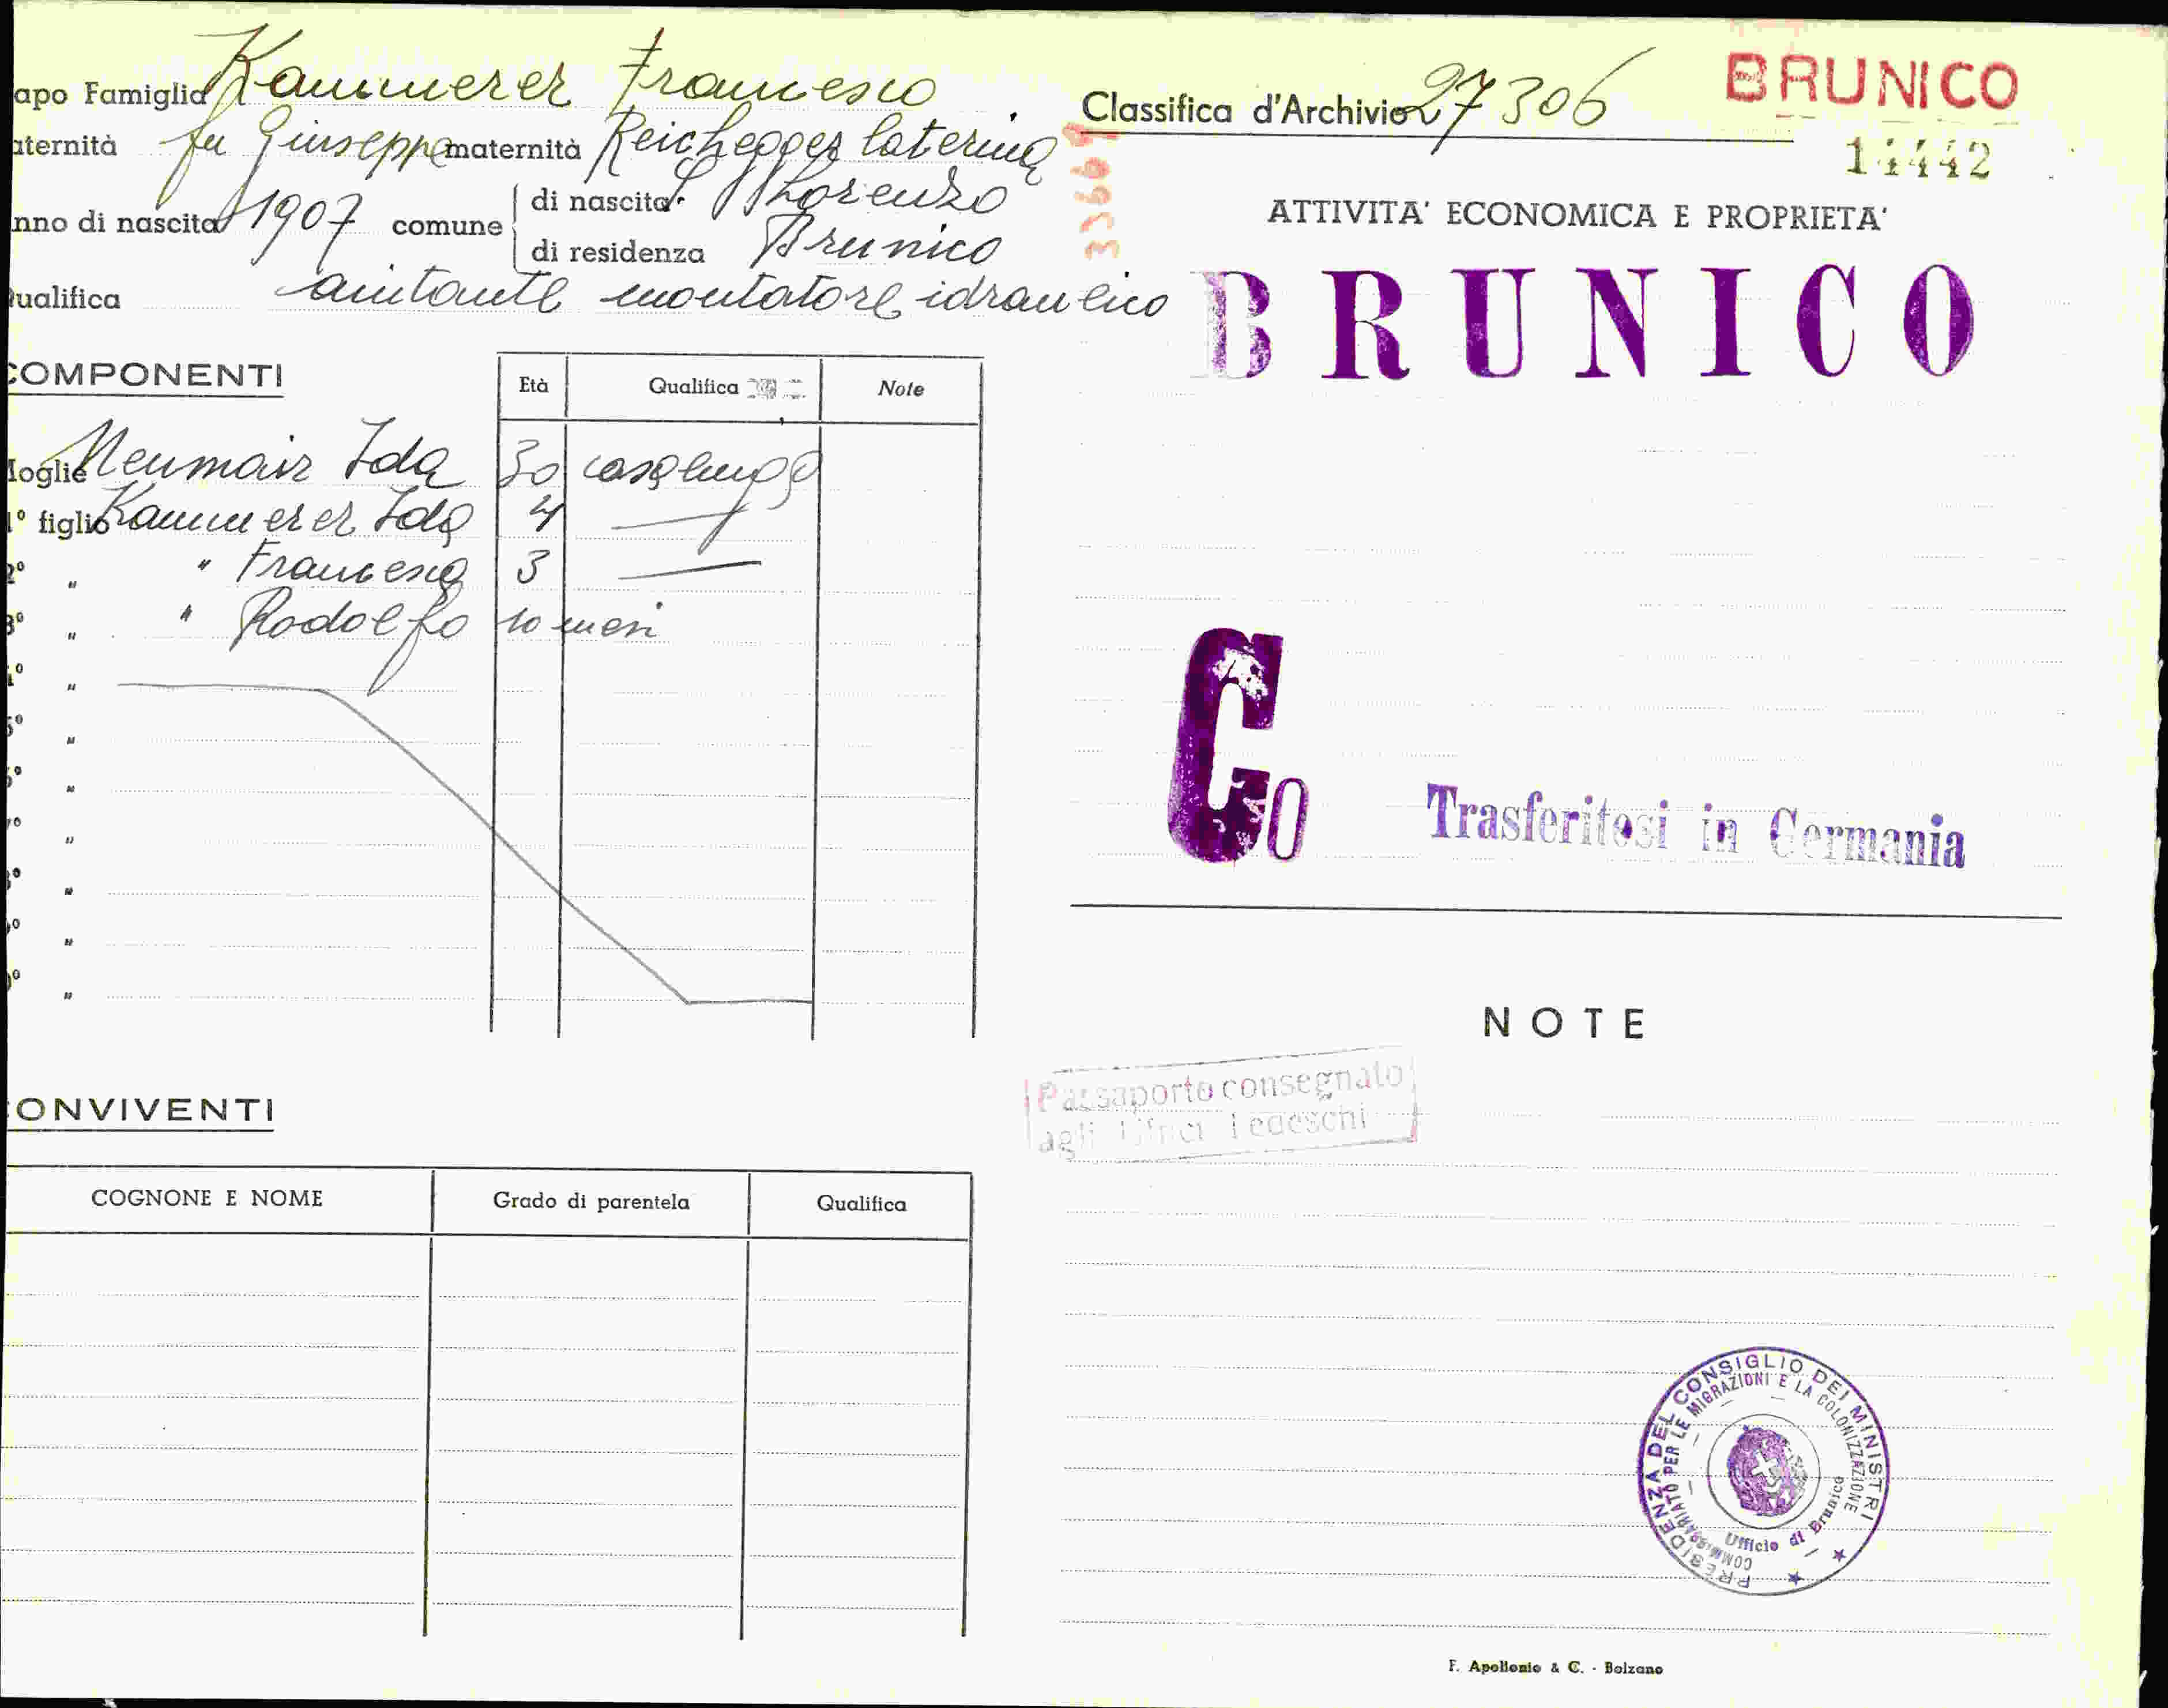 apo Famiglia Kammerer Francesco
aternità fu Giuseppe maternità Reichegger Caterina
nno di nascita 1907 comune di nascita S. Lorenzo
di residenza Brunico
ualifica aiutante montatore idraulico
COMPONENTI
Età Qualifica Note
oglie Neumair Ida 30 casalinga
1° figlio Kammerer Ida 4 —
2° " " Francesca 3 —
3° " " Rodolfo 10 mesi
4° "
5° "
6° "
7° "
8° "
9° "
0° "
ONVIVENTI
COGNONE E NOME Grado di parentela Qualifica
Classifica d'Archivio 27306
BRUNICO
14442
ATTIVITA' ECONOMICA E PROPRIETA'
BRUNICO
Go
Trasferitosi in Germania
NOTE
Passaporto consegnato
agli Uffici Tedeschi
PRESIDENZA DEL CONSIGLIO DEI MINISTRI
COMMISSARIATO PER LE MIGRAZIONI E LA COLONIZZAZIONE
Ufficio di Brunico
F. Apollonio & C. - Bolzano